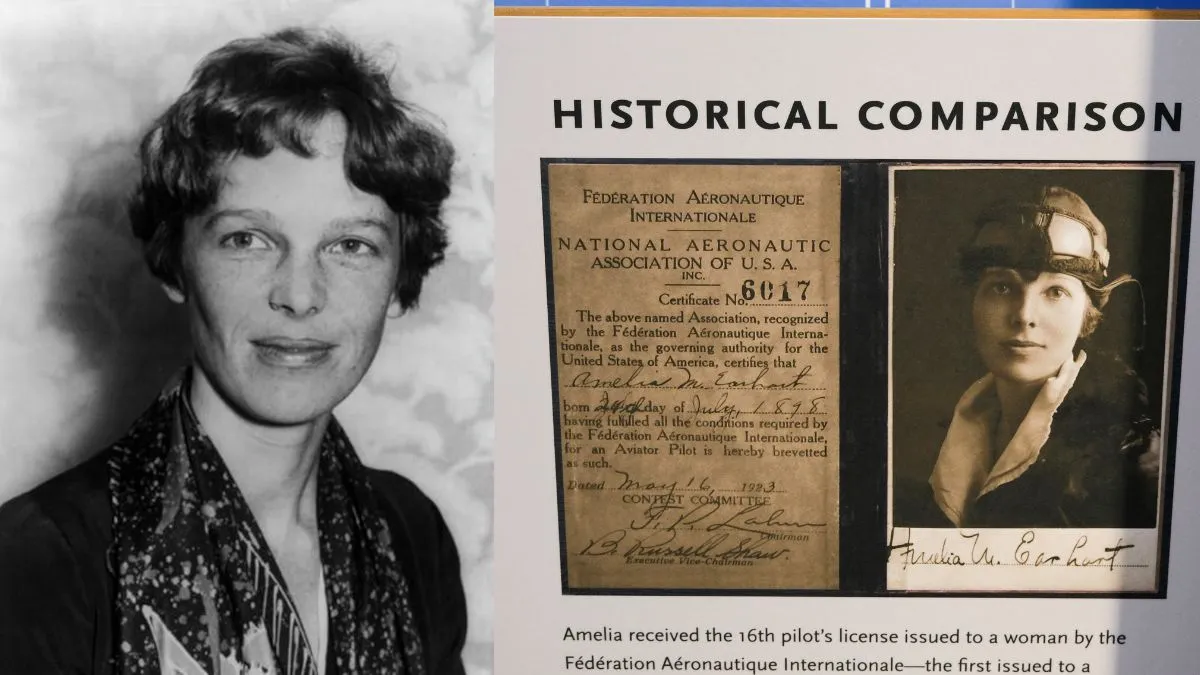 HISTORICAL COMPARISON
FÉDÉRATION AÉRONAUTIQUE
INTERNATIONALE
NATIONAL AERONAUTIC
ASSOCIATION OF U. S. A.
INC.
Certificate No. 6017
The above named Association, recognized
by the Fédération Aéronautique Interna-
tionale, as the governing authority for the
United States of America, certifies that
Amelia M. Earhart
born 24th day of July, 1898
having fulfilled all the conditions required by
the Fédération Aéronautique Internationale,
for an Aviator Pilot is hereby brevetted
as such.
Dated May 16, 1923
CONTEST COMMITTEE
Chairman
B. Russell Shaw.
Executive Vice-Chairman
Amelia M. Earhart
Amelia received the 16th pilot's license issued to a woman by the
Fédération Aéronautique Internationale—the first issued to a